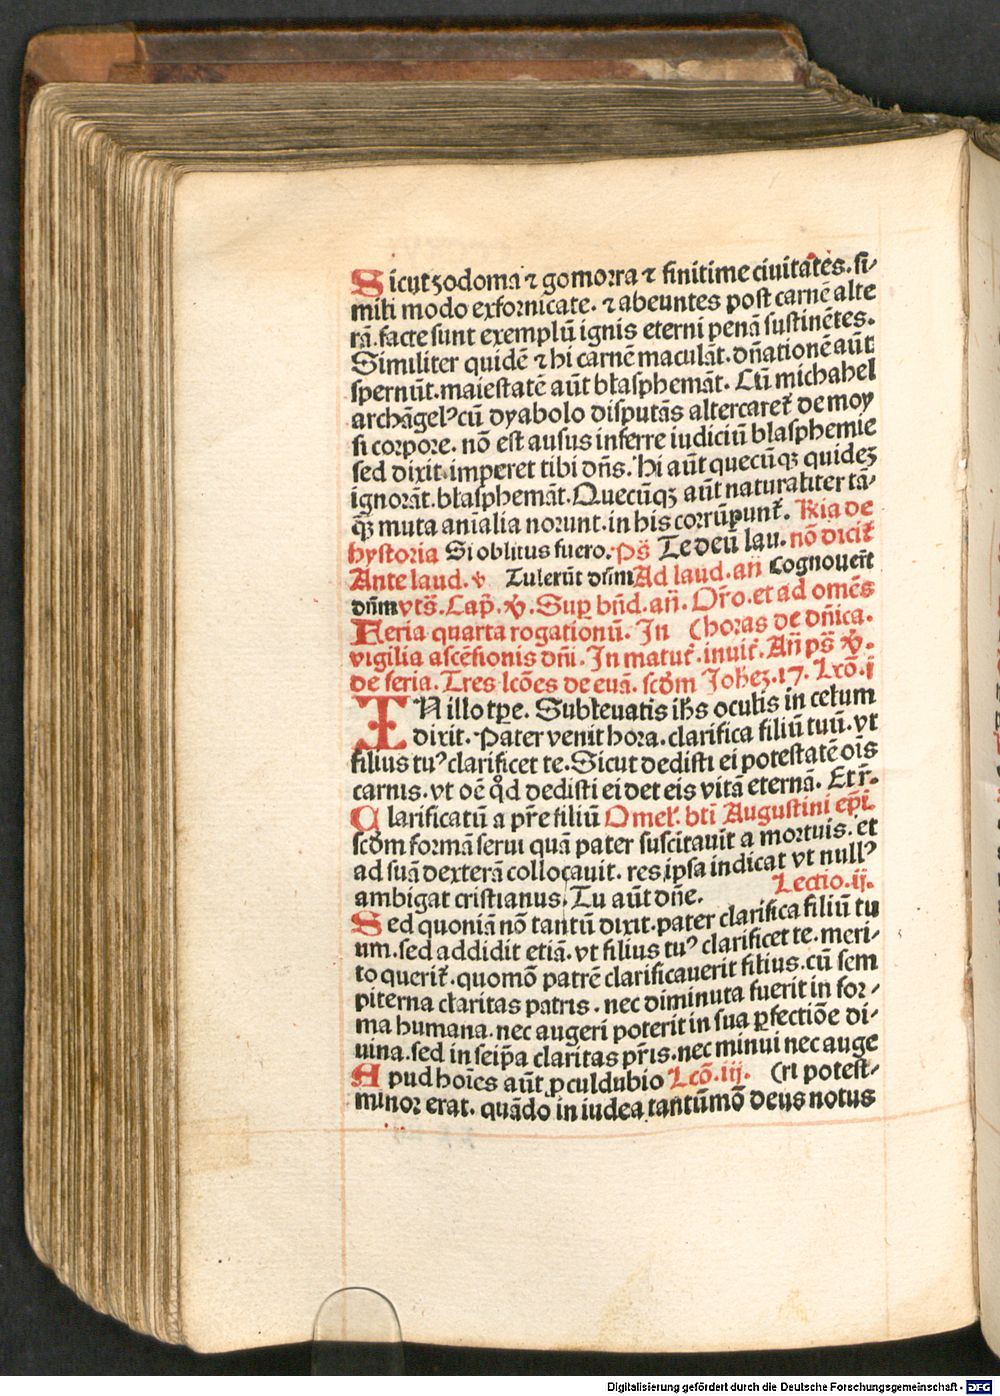 Sicut zodoma ⁊ gomorra ⁊ finitime ciuitates. si-
mili modo exfornicate. ⁊ abeuntes post carnē alte
rā. facte sunt exemplū ignis eterni penā sustinētes.
Similiter quidē ⁊ hi carnē maculāt. dn̄ationē aūt
spernūt. maiestatē aūt blasphemāt. Cū michahel
archāgelꝰ cū dyabolo disputās altercaret᷑ de moy
si corpore. nō est ausus inferre iudiciū blasphemie
sed dixit. imperet tibi dn̄s. Hi aūt quecūqꝫ quideꝫ
ignorāt. blasphemāt. Quecūqꝫ aūt naturaliter tā-
qꝫ muta anīalia norunt. in his corrūpunt᷑. Rīa de
hystoria Si oblitus fuero. Ps̄ Te deū lau. nō dicit᷑
Ante laud. v Tulerūt dn̄m Ad laud. an̄ Cognouer̄t
dn̄m vts̄. Cap̄. v̄. Sup bn̄d. an̄. Or̄o. et ad omēs
Feria quarta rogationū. In (horas de dn̄ica.
vigilia ascēsionis dn̄i. In matut᷑. inuit᷑. An̄ ps̄ v̄.
de feria. Tres lcōes de euā. scd̄m Joheꝫ. 17. Lcō. i
IN illo tp̄e. Subleuatis ih̄s oculis in celum
dixit. Pater venit hora. clarifica filiū tuū. vt
filius tuꝰ clarificet te. Sicut dedisti ei potestatē oīs
carnis. vt oē qd̄ dedisti ei det eis vitā eternā. Et r̄.
Clarificatū a pr̄e filiū Omel᷑. bt̄i Augustini ep̄i.
scd̄m formā serui quā pater suscitauit a mortuis. et
ad suā dexterā collocauit. res ipsa indicat vt nullꝰ
ambigat cristianus. Tu aūt dn̄e. Lectio. ij.
Sed quoniā nō tantū dixit. pater clarifica filiū tu
um. sed addidit etiā. vt filius tuꝰ clarificet te. meri-
to querit᷑. quomō patrē clarificauerit filius. cū sem
piterna claritas patris. nec diminuta fuerit in for-
ma humana. nec augeri poterit in sua ꝑfectiōe di-
uina. sed in seip̄a claritas pr̄is. nec minui nec auge
Apud hoīes aūt ꝓculdubio Lcō. iij. (ri potest-
minor erat. quādo in iudea tantūmō deus notus
Digitalisierung gefördert durch die Deutsche Forschungsgemeinschaft - DFG